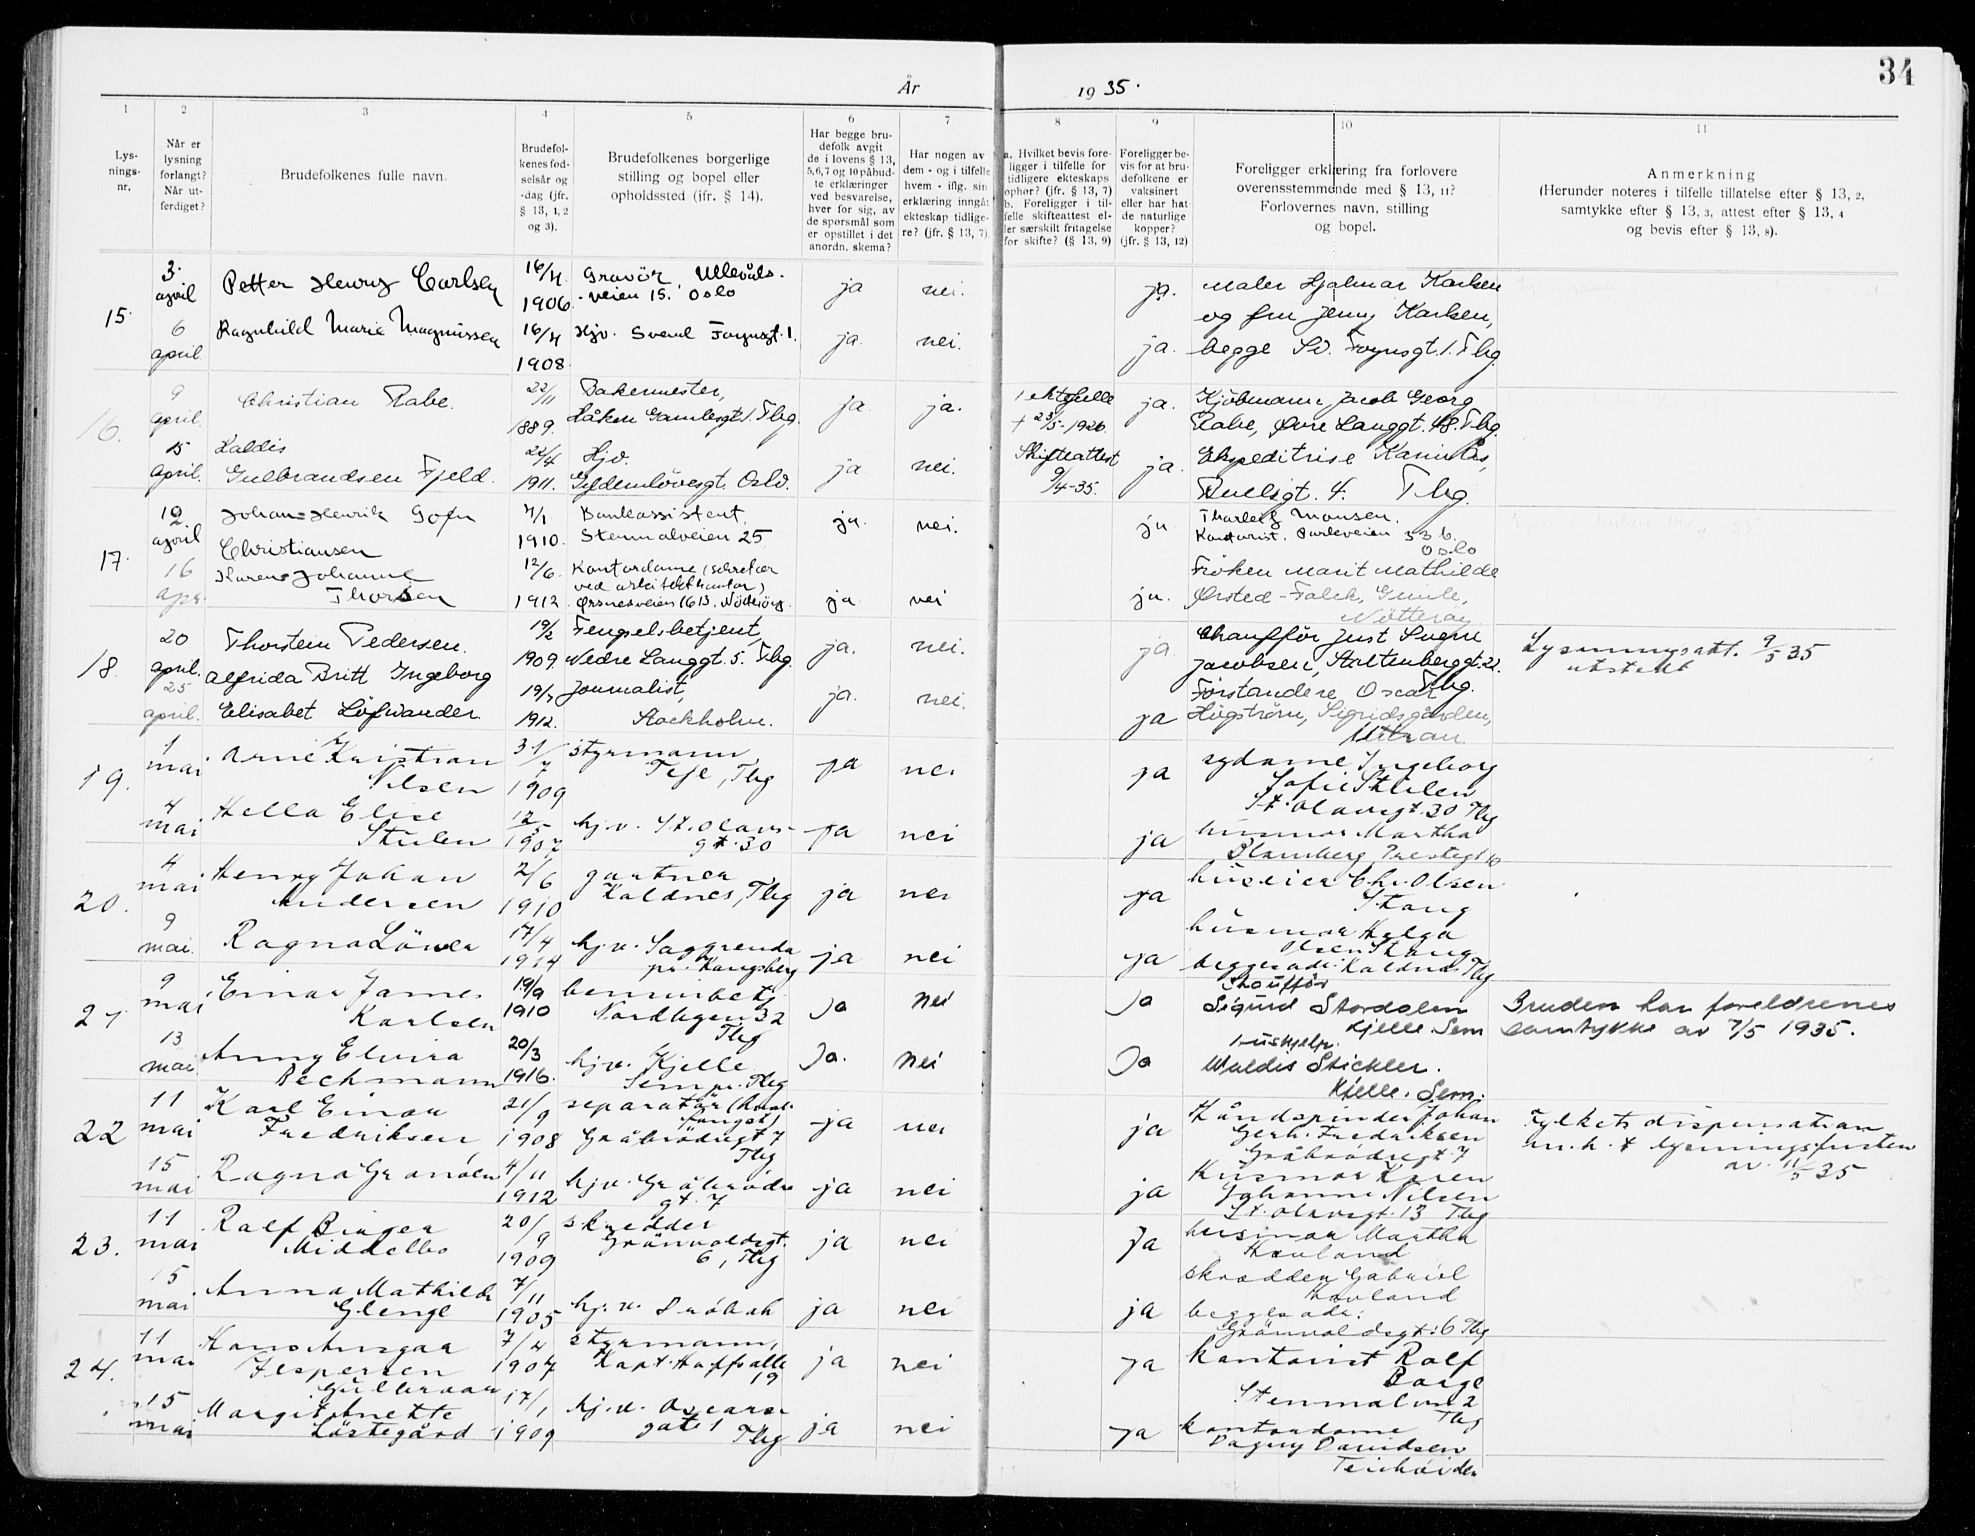 34
År 1935.
1 2 3 4 5 6 7 8 9 10 11
Lys-
nings-
nr.
Når er
lysning
forlangt?
Når ut-
ferdiget?
Brudefolkenes fulle navn.
Brudefol-
kenes fød-
selsår og
-dag (jfr.
§ 13, 1, 2
og 3).
Brudefolkenes borgerlige
stilling og bopel eller
opholdssted (jfr. § 14).
Har begge bru-
defolk avgit
de i lovens § 13,
5,6,7 og 10 påbud-
te erklæringer
ved besvarelse,
hver for sig, av
de spørsmål som
er opstillet i det
anordn. skema?
Har nogen av
dem - og i tilfelle
hvem - iflg. sin
erklæring inngåt
ekteskap tidlige-
re? (jfr. § 13, 7).
a. Hvilket bevis fore-
ligger i tilfelle for
tidligere ekteskaps
ophør? (jfr. § 13, 7)
b. Foreligger i til-
felle skifteattest el-
ler særskilt fritagelse
for skifte? (§ 13, 9)
Foreligger be-
vis for at bru-
defolkene er
vaksinert
eller har hat
de naturlige
kopper?
(jfr. § 13, 12)
Foreligger erklæring fra forlovere
overensstemmende med § 13, 11?
Forlovernes navn, stilling
og bopel.
Anmerkning
(Herunder noteres i tilfelle tillatelse efter § 13, 2,
samtykke efter § 13, 3, attest efter § 13, 4
og bevis efter § 13, 8).
15.
3. april
Petter Henry Carlsen
16/4 1906.
Gravör, Ullevåls-
veien 15. Oslo
ja
nei.
ja.
Maler Hjalmar Karlsen
og fru Jenny Karlsen,
6 april
Ragnhild Marie Magnussen
16/4 1908.
Hjv. Svend Foynsgt. 1.
ja.
nei.
ja.
begge Sv. Foynsgt. 1. Tbg.
16.
9 april.
Christian Rabe.
22/11 1889.
Bakermester,
Håkon Gamlesgt. 1. Tbg.
ja.
ja.
1 ektefelle
+ 23/5-1926
ja.
Kjöbmann Jacob Georg
Rabe, Øvre Langgt. 48. Tbg.
15 april.
Haldis
Gulbrandsen Fjeld.
22/4 1911.
Hjv.
Gyldenlövesgt. Oslo.
ja
nei.
Skifteattest
9/4-35.
ja.
Ekspeditrise
4. Tbg.
17.
12 april
Johan Henrik
Christiansen
4/1 1910.
Bankassistent.
Stenmalveien 25
ja.
nei.
ja
Thorleif Monsen.
Kontorist. Parkveien 53 b.
Oslo
16 apr.
Karen Johanne
Thorsen
12/6. 1912.
Kontordame (sekretær
ved arkitektkontor)
Ørsnesveien 1613. Nötteröy.
ja
nei
ja.
Fröken Marit Mathilde
Ørsted-Falck,
Nötteröy
18.
20 april.
Thorstein Pedersen.
19/2 1909.
Fengselsbetjent,
Nedre Langgt. 5. Tbg.
ja.
nei.
ja.
Chaufför Just Sugne
Jacobsen, Stoltenberggt. 22.
Tbg.
Lysningsatt. 9/5 35
utstedt
25 april.
Alfrida Britt Ingeborg
Elisabet Löfwander.
19/7 1912.
Journalist,
Stockholm.
ja.
nei.
ja
Förstandere Oscar
Högström, Sigridsgården,
19.
1 mai
Arne Kristian
Nilsen
31/7 1909
styrmann
Teje, Tbg
ja
nei
ja
sydame Ingeborg
Sofie Stulen
St. Olavsgt. 30 Tbg
4 mai
Hella Elise
Stulen
12/5 1907
hj.v. St. Olavs-
gt. 30
ja
nei
ja
husmor Martha
Blomberg Prestegt 10
20.
4 mai
Henry Johan
Andersen
2/6 1910
gartner
Kaldnes, Tbg
ja
nei
ja
huseier Chr. Olsen
Stang
9 mai
Ragna Löver
17/4 1914
hj.v. Saggrenda
pr. Kongsberg
ja
nei
ja
husmor Helga
Olsen Stang
beggesadr. Kaldnes Tbg
21
9 mai
Einar James
Karlsen
19/9 1910
bensinbetj.
Nordbyen 32
Tbg
Ja
nei
Ja
Chaufför
Sigurd Stordalen
Kjelle. Sem
Bruden har foreldrenes
samtykke av 7/5 1935.
13 mai
Anny Elvira
Bechmann
20/3 1916.
hj.v. Kjelle
Sem pr. Tbg
Ja.
nei
Ja
hushjelp.
Waldis Stickler.
Kjelle. Sem.
22
11 mai
Karl Einar
Fredriksen
21/9 1908
separatör (hval-
fangst)
Gråbrödregt 7
Tbg
ja
nei
ja
Håndspinder Johan
Gerh. Fredriksen
Gråbrödregt. 7
Fylkets dispensation
m.h.t. lysningsfristen
av 11/5 35
15 mai
Ragna Granöien
4/11 1912
hj.v. Gråbrödre
gt. 7
ja
nei
ja
Husmor Karen
Johanne Nilsen
St. Olavsgt. 13 Tbg
23.
11 mai
Rolf Birger
Middelbo
20/9 1909
skredder
Grönvoldsgt.
6, Tbg
ja
nei
ja
husmor Martha
Havland
15 mai
Anna Mathilde
Glenge
7/11 1905
hj.v. Dröbak
ja
nei
ja
skredder Gabriel
Havland
beggesadr:
Grönvoldsgt. 6 Tbg
24.
11 mai
Hans Ansgar
Jespersen
Gulbraar
7/4 1907
styrmann,
Kapt. Hoffs alle
19
ja
nei
ja
kontorist Rolf
Borge
Stenmalvn 2
Tbg
15 mai
Margit Anette
Löstegård
17/1 1909
hj.v. Oscars
gate 1
Tbg
ja
nei
ja
kontordame
Dagny Davidsen
Teiehöiden